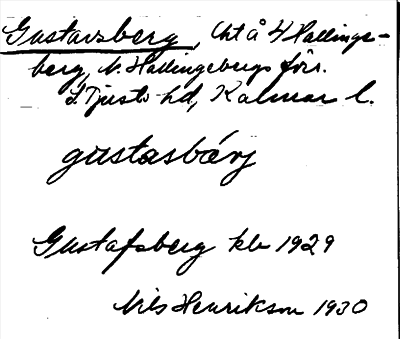 Gustavsberg, lht å 4 Hallings-
berg, N. Hallingebergs förs.
S. Tjusts hd, Kalmar l.
gustasbárj
Gustafsberg kb 1929
Nils Henrikson 1930